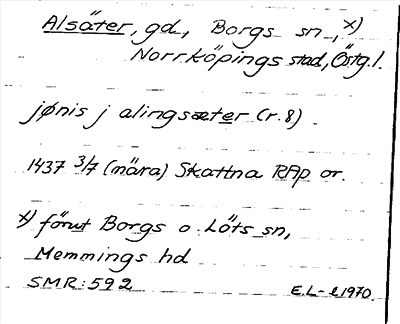 Alsäter, gd, Borgs sn, x)
Norrköpings stad, Östg.l.
jønis j alingsæter (r.8)
1437 3/7 (nära) Skattna RAp or.
x) förut Borgs o. Löts sn,
Memmings hd
SMR:592
E.L-l 1970.